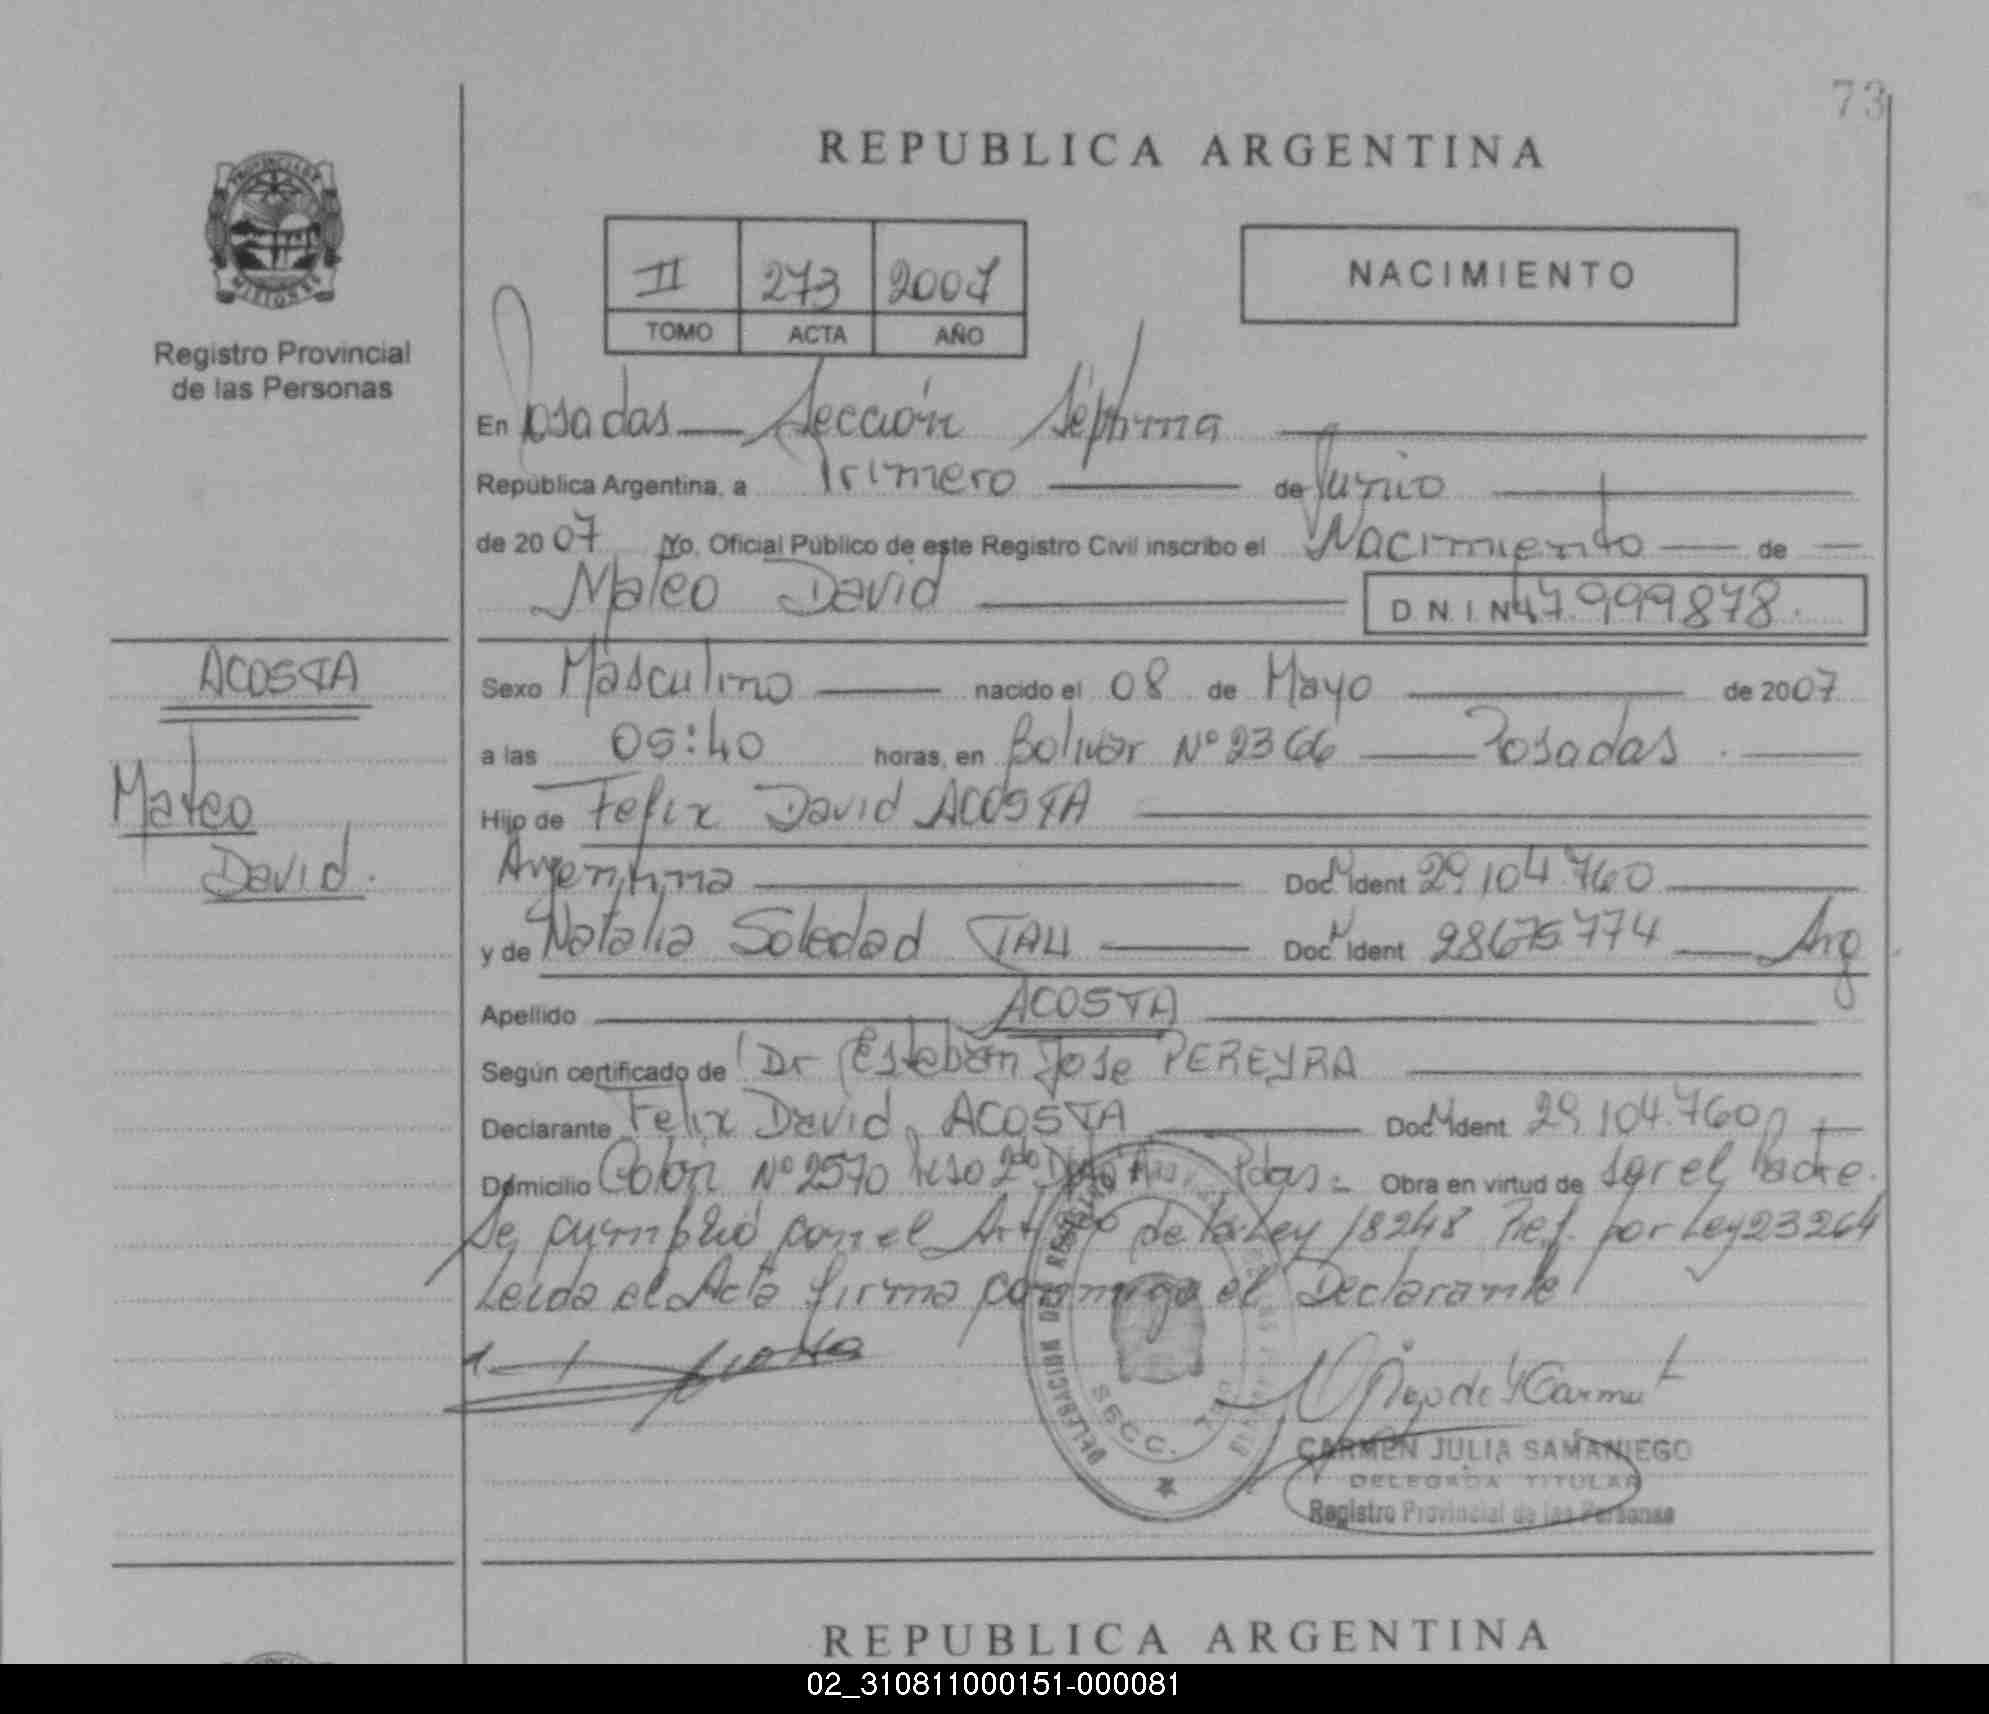 73
REPUBLICA ARGENTINA
PROVINCIA DE
MISIONES
Registro Provincial
de las Personas
II 273 2007
TOMO ACTA AÑO
NACIMIENTO
En Posadas Sección Séptima
República Argentina, a Primero de Junio
de 2007 Yo, Oficial Público de este Registro Civil inscribo el Nacimiento de
Mateo David D.N.I.N 47.999.878.
ACOSTA
Mateo
David.
Sexo Masculino nacido el 08 de Mayo de 2007
a las 05:40 horas, en Bolivar Nº 2366 Posadas
Hijo de Felix David ACOSTA
Argentina Doc N Ident 29.104.760
y de Natalia Soledad Doc N Ident 28675774 Arg
Apellido ACOSTA
Según certificado de Dr Esteban Jose PEREYRA
Declarante Felix David ACOSTA Doc N Ident 29.104.760
Domicilio Colón Nº 2570 Piso 2do Dpto A Pdas. Obra en virtud de ser el Padre.
Se cumplió con el Art de la Ley 18248 Ref. por Ley 23264
Leída el Acta firma conmigo el Declarante
DELEGACION DEL REGISTRO
SECC. 7
CARMEN JULIA SAMANIEGO
DELEGADA TITULAR
Registro Provincial de las Personas
REPUBLICA ARGENTINA
02_310811000151-000081